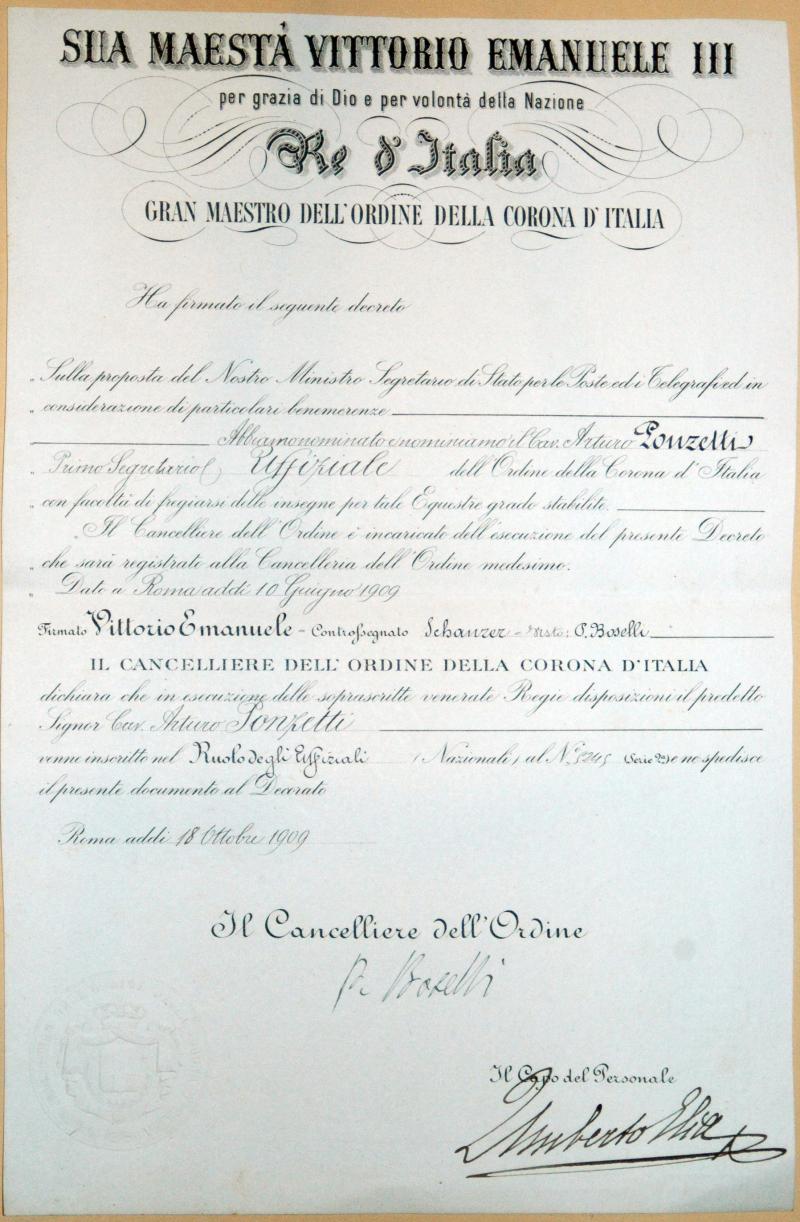 SUA MAESTÀ VITTORIO EMANUELE III
per grazia di Dio e per volontà della Nazione
Re d'Italia
GRAN MAESTRO DELL'ORDINE DELLA CORONA D'ITALIA
Ha firmato il seguente decreto
„ Sulla proposta del Nostro Ministro Segretario di Stato per le Poste ed i Telegrafi ed in
„ considerazione di particolari benemerenze
Abbiamo nominato e nominiamo il Cav. Arturo Ponzetti
„ Primo Segretario Uffiziale dell'Ordine della Corona d'Italia
„ con facoltà di fregiarsi delle insegne per tale Equestre grado stabilite.
„ Il Cancelliere dell'Ordine è incaricato dell'esecuzione del presente Decreto
„ che sarà registrato alla Cancelleria dell'Ordine medesimo.
„ Dato a Roma addì 10 Giugno 1909
Firmato Vittorio Emanuele - Controssegnato Schanzer - Visto: P. Boselli
IL CANCELLIERE DELL'ORDINE DELLA CORONA D'ITALIA
dichiara che in esecuzione delle soprascritte venerate Regie disposizioni il predetto
Signor Cav. Arturo Ponzetti
venne inscritto nel Ruolo degli Uffiziali (Nazionali) al N.º (Serie 2ª) e ne spedisce
il presente documento al Decorato
Roma addì 18 Ottobre 1909
Il Cancelliere dell'Ordine
P. Boselli
Il Capo del Personale
Umberto Elia